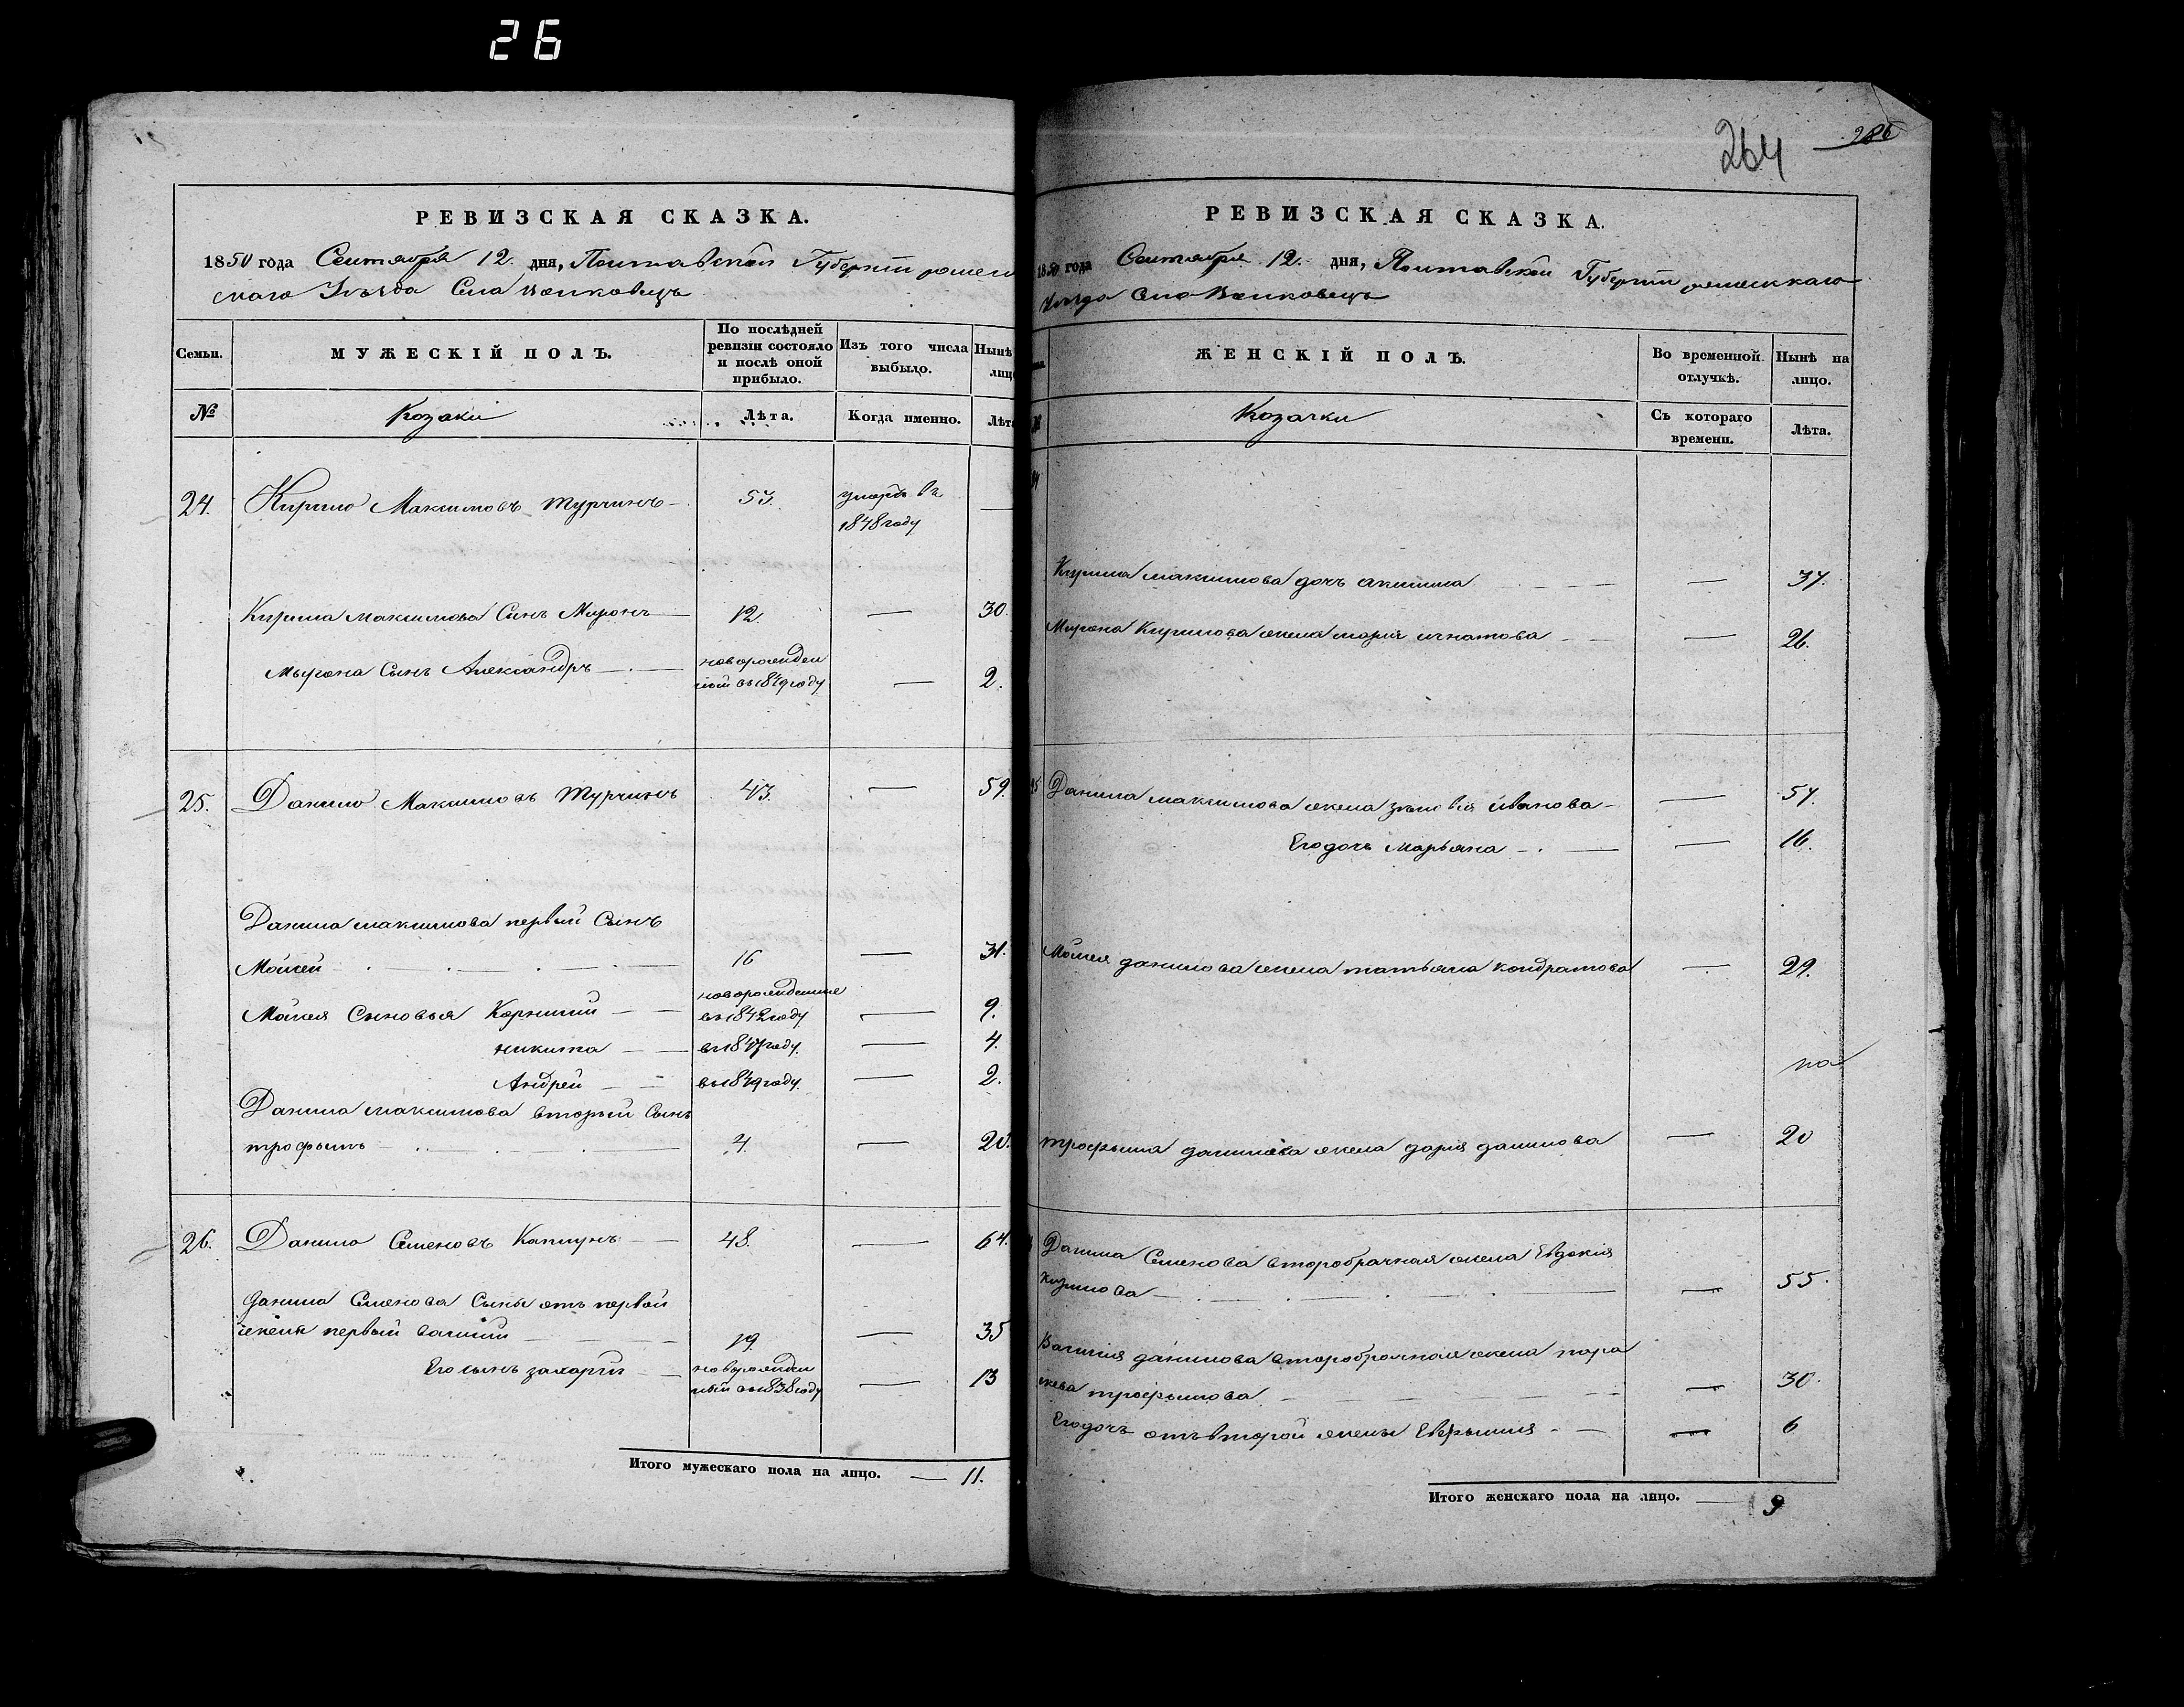 26
РЕВИЗСКАЯ СКАЗКА.
1850 года Сентября 12. дня, Полтавской Губерніи ромен
скаго Уѣзда Села Волковецъ
Семьи.
МУЖЕСКІЙ ПОЛЪ.
По послѣдней ревизіи состояло и послѣ оной прибыло.
Изъ того числа выбыло.
Нынѣ лицо
№
Козаки
Лѣта.
Когда именно.
Лѣта
24. Кирило Максимовъ Турчинъ 53. умеръ въ
1848 году
Кирила максимова Сынъ Миронъ 12. — 30.
Мырона Сынъ Александръ — новорожден
ный въ 1849 году — 2.
25. Данило Максимовъ Турчинъ 43. — 59.
Данила максимова первый Сынъ
Мойсей 16 — 31.
Мойсея Сыновья Корнилий — новорожденные
въ 1842 году — 9.
никита — въ 1847 году — 4.
Андрей — въ 1849 году — 2.
Данила максимова вторый Сынъ
трофымъ 4. — 20.
26. Данило Семеновъ Капунъ 48. — 64.
Данила Семенова Сыны отъ первой
жены первый василий 19. — 35
Его сынъ захарій — новорожден
ный въ 1838 году — 13
Итого мужескаго пола на лицо. — 11.
264
286
РЕВИЗСКАЯ СКАЗКА.
1850 года Сентября 12. дня, Полтавской Губерніи роменскаго
Уѣзда Села Волковецъ
ЖЕНСКІЙ ПОЛЪ.
Во временной отлучкѣ.
Нынѣ на лицо.
№
Козачки
Съ котораго времени.
Лѣта.
Кирила максимова дочь акилина — 37.
Мирона Кирилова жена марія игнатова — 26.
25 Данила максимова жена зѣновія иванова — 57.
Его дочь Марьяна — 16.
Мойсея данилова жена татьяна кондратова — 29.
на
трофыма данилова жена дарія данилова — 20
Данила Семенова второбрачная жена Евдокія
— 55.
Василия данилова второбрачная жена пара
скева трофымова — 30.
Его дочь отъ второй жены Евфымия — 6
Итого женскаго пола на лицо. — 9